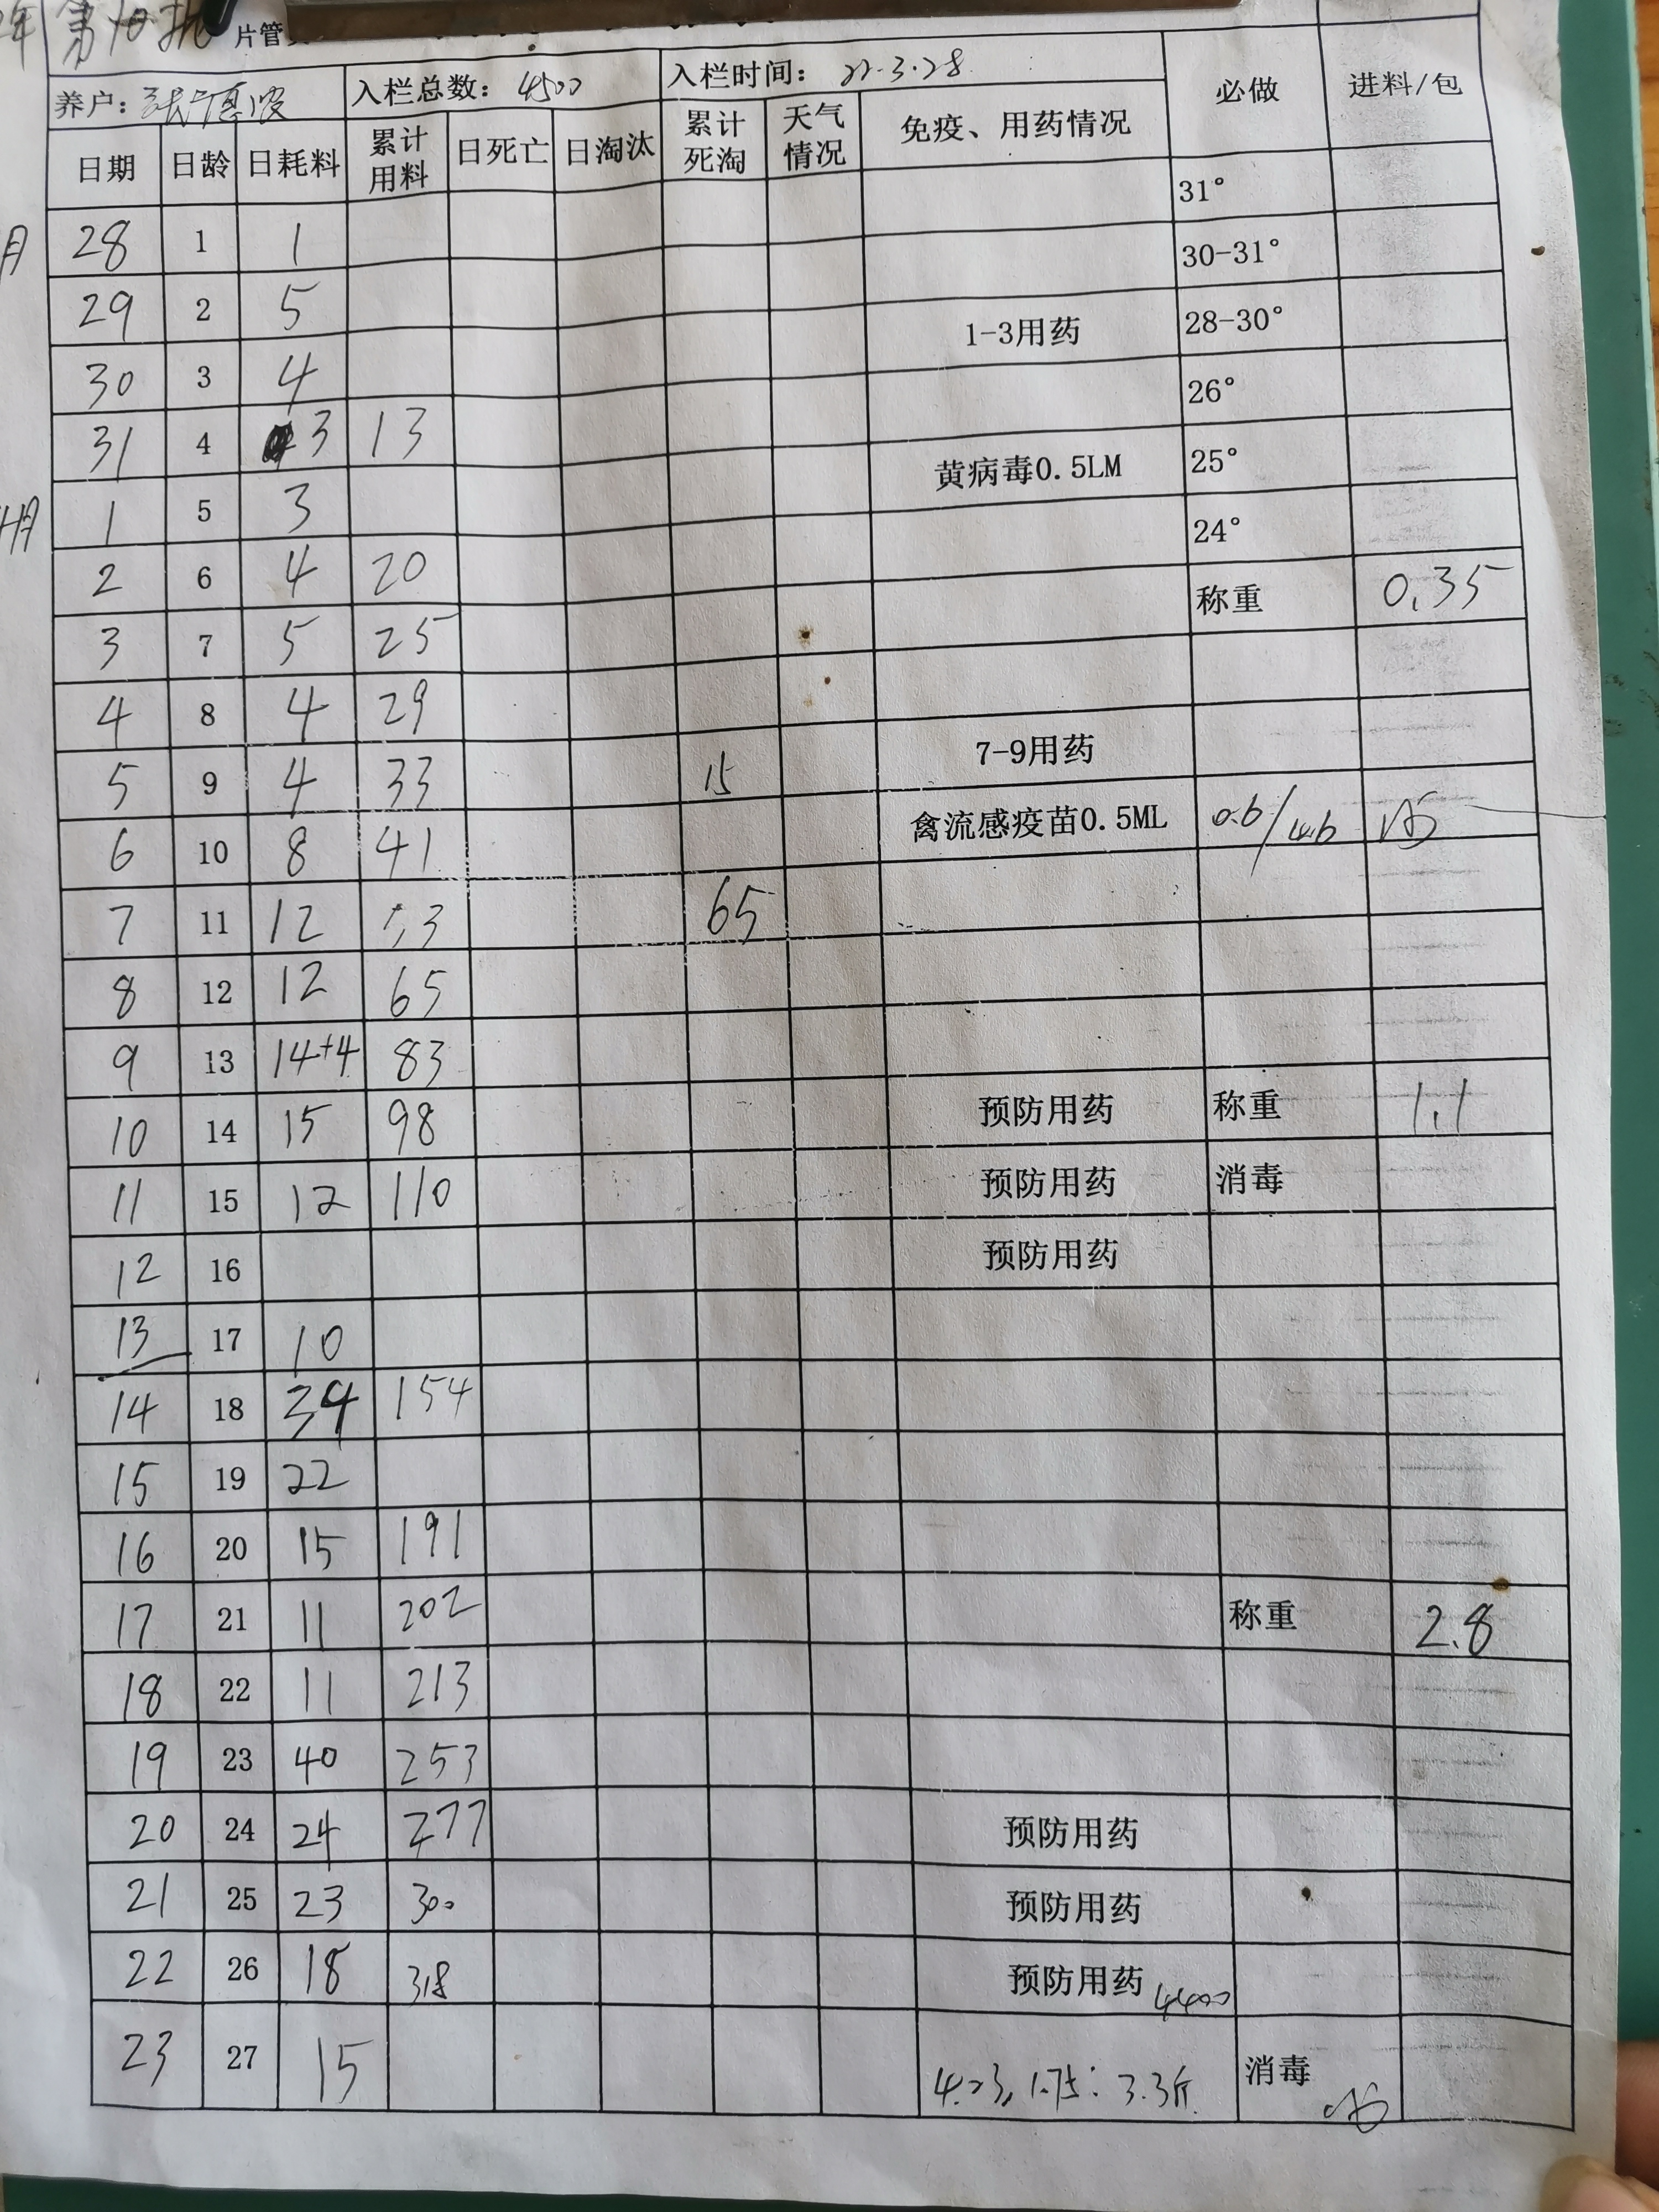 年 第10批 片管
养户： 入栏总数：4500 入栏时间：22.3.28 必做 进料/包
日期 日龄 日耗料 累计用料 日死亡 日淘汰 累计死淘 天气情况 免疫、用药情况
31°
月 28 1 1 30-31°
29 2 5 1-3用药 28-30°
30 3 4 26°
31 4 3 13 黄病毒0.5LM 25°
4月 1 5 3 24°
2 6 4 20 称重 0.35
3 7 5 25
4 8 4 29 7-9用药
5 9 4 33 15 禽流感疫苗0.5ML 0.6/4.6
6 10 8 41
7 11 12 53 65
8 12 12 65
9 13 14+4 83 预防用药 称重 1.1
10 14 15 98 预防用药 消毒
11 15 12 110 预防用药
12 16
13 17 10
14 18 34 154
15 19 22
16 20 15 191
17 21 11 202 称重 2.8
18 22 11 213
19 23 40 253
20 24 24 277 预防用药
21 25 23 300 预防用药
22 26 18 318 预防用药 4400
23 27 15 4.23, 1.75: 3.3斤 消毒